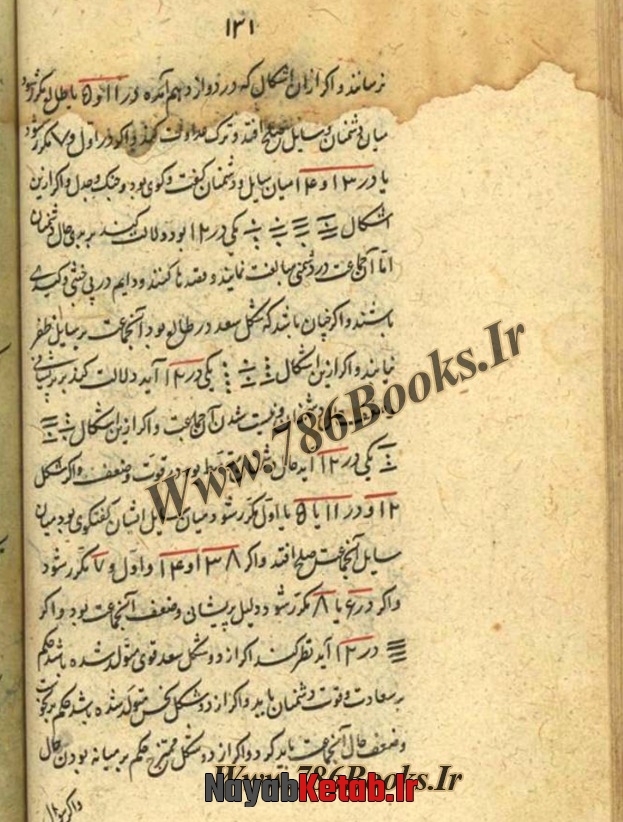 ۱۳۱
نرسانند و اگر از ان اشکال که در دوازدهم آمده در ۱۱ و ۵ با طالع مکرر شود
میان دشمنان و سایل صلح افتد و ترک عداوت کنند و اگر در اول و ۷ مکرر شود
یا در ۱۳ و ۱۴ میان سایل و دشمنان گفت و گوی بود و جنگ و جدل و اگر ازین
اشکال یکی در ۱۲ بود دلالت کند بر بدی حال دشمنان
اما آنجماعت در دشمنی مبالغت نمایند و قصدها کنند و دایم در پی
باشند و اگر چنان باشد که شکل سعد در طالع بود آنجماعت بر سایل ظفر
نیابند و اگر ازین اشکال یکی در ۱۲ آید دلالت کند بر پریشانی
دشمنان و نیست شدن آن جماعت و اگر ازین اشکال
یکی در ۱۲ آید حال بود در قوت و ضعف و اگر شکل
۱۲ و در ۱۱ یا ۵ یا اول مکرر شود میان سایل ایشان گفتگوی بود میان
سایل آنجماعت صلح افتد و اگر ۸ ۱۳ و ۱۴ و اول و ۷ مکرر شود
و اگر در ۶ یا ۸ مکرر شود دلیل پریشانی و ضعف آنجماعت بود و اگر
در ۱۲ آید نظر کنند اگر از دو شکل سعد قوی متولد شده باشد حکم
بر سعادت و قوت دشمنان باید و اگر از دو شکل نحس متولد شده باشد حکم بر نحوست
و ضعف حال آنجماعت باید کرد و اگر از دو شکل ممتزج حکم بر میانه بودن حال
و اگر سوال
Www.786Books.Ir
Www.786Books.Ir
NayabKetab.Ir